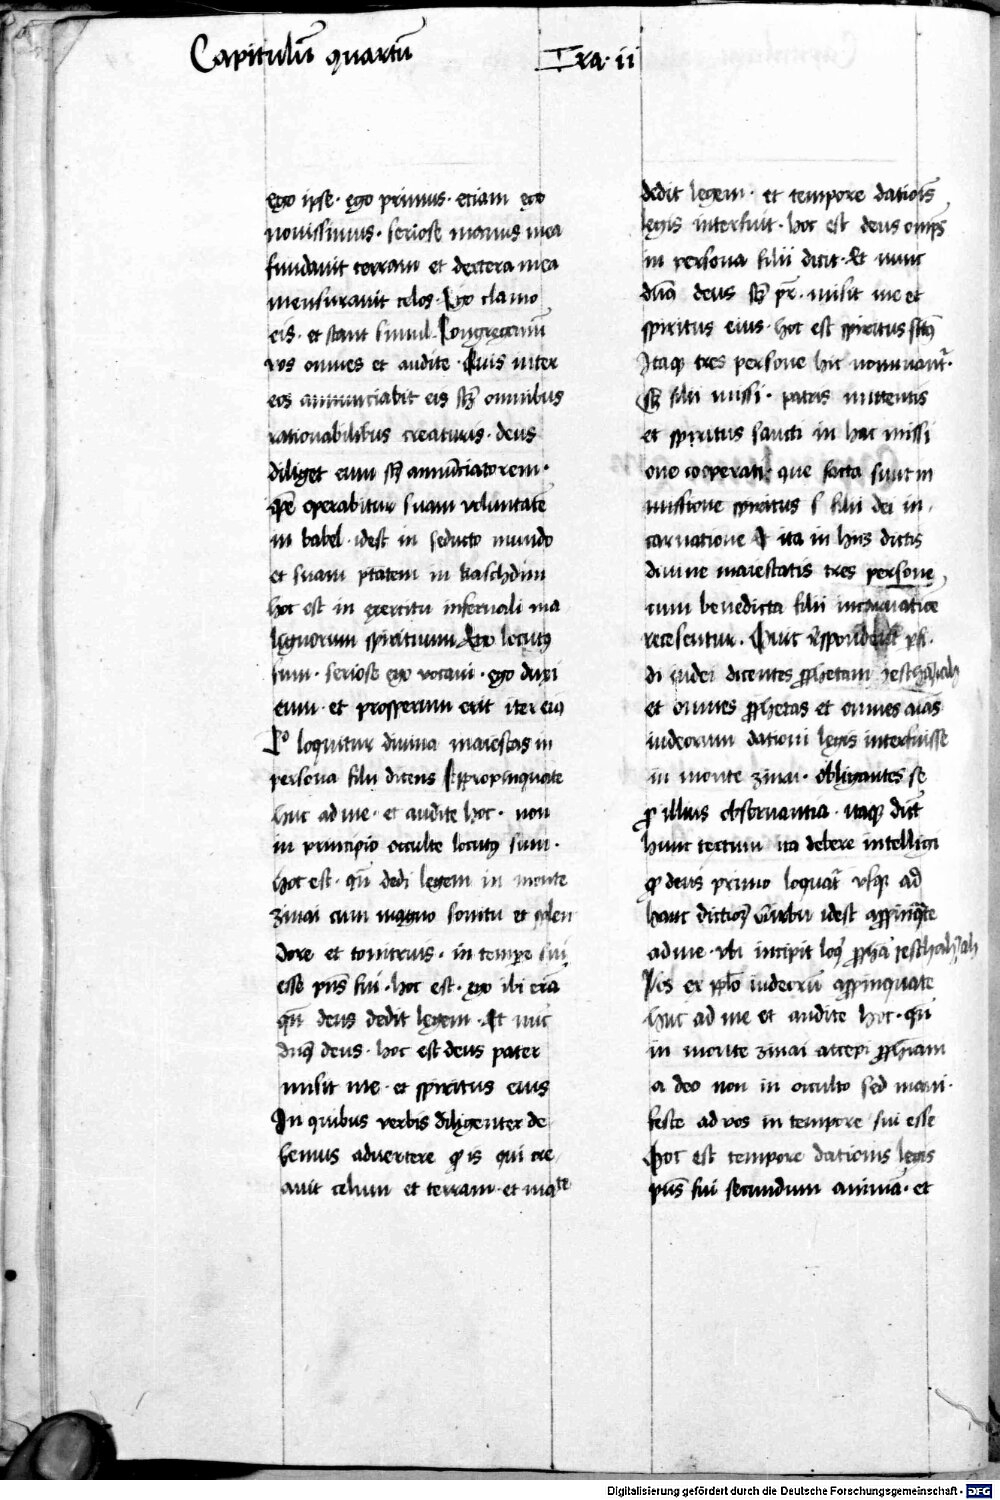 Capitulū quartū Tra· ii
ego ipse· ego primus· etiam ego
nouissimus· seriose manus mea
fundauit terram et dextera mea
mensurauit celos· Ego clamo
eis· et stant simul· Congregemī
vos omnes et audite· Quis inter
eos annunciabit eis sz omnibus
rationabilibus creaturis· deus
diliget eum sz annūciatorem·
ipse operabitur suam voluntatē
in babel· idest in seducto mundo
et suam ptatem in kaschdim
hoc est in exercitu infernali ma
lignorum spirituum Ego locutꝯ
sum· seriose ego vocaui· ego duxi
eum· et prosperum erit iter eiꝯ
loquitur diuina maiestas in
persona filii dicens Appropinquate
huc ad me· et audite hoc· non
in principio occulte locutꝯ sum·
hoc est· qn̄ dedi legem in monte
zinai cum magno sonitu et splen
dore et tonitruis· in tempore sui
esse pn̄s fui· hoc est· ego ibi erā
qn̄ deus dedit legem· Et nūc
dn̄s deus· hoc est deus pater
misit me· et spiritus eius
In quibus verbis diligenter de
bemus aduertere ꝙ is qui cre
auit celum et terram· et ma
dedit legem· et tempore dationis
legis interfuit· hoc est deus omps
in persona filii dicit· Et nunc
dn̄s deus sz pr̄· misit me et
spiritus eius· hoc est spiritus sctꝯ
Itaqꝫ tres persone hic nominant̄·
sz filii missi· patris mittentis
et spiritus sancti in hac missi
one cooperati· que facta sunt in
missione spiritus s filii dei in
carnatione Et ita in hiis dictis
diuine maiestatis tres persone
cum benedicta filii incarnatione
recesentur·
di iudei dicentes ꝓphetam
et omnes ꝓphetas et omnes aīas
iudeorum dationi legis interfuisse
in monte zinai· obligantes se
ꝓ illius obseruantia· itaqꝫ dicūt
hunc textum ita debere intelligi
ꝙ deus primo loquat̄ vsqꝫ ad
hanc dictionē idest appinquate
ad me· vbi incipit loq ꝓpha jeschahiah
Vis ex pplō iudeorū appinquate
huc ad me et audite hoc· qn̄
in monte zinai accepi ꝓphiam
a deo non in occulto sed mani·
feste ad vos in tempore sui esse
hoc est tempore dationis legis
pn̄s fui secundum animā· et